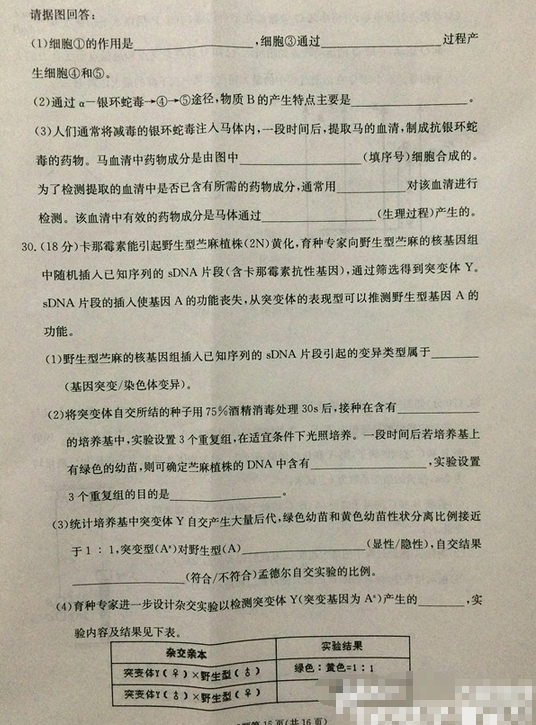 请据图回答：
(1)细胞①的作用是____________,细胞③通过____________过程产
生细胞④和⑤。
(2)通过 α-银环蛇毒→④→⑤途径,物质 B 的产生特点主要是____________。
(3)人们通常将减毒的银环蛇毒注入马体内,一段时间后,提取马的血清,制成抗银环蛇
毒的药物。马血清中药物成分是由图中____________(填序号)细胞合成的。
为了检测提取的血清中是否已含有所需的药物成分,通常用________对该血清进行
检测。该血清中有效的药物成分是马体通过____________(生理过程)产生的。
30.(18 分)卡那霉素能引起野生型苎麻植株(2N)黄化,育种专家向野生型苎麻的核基因组
中随机插入已知序列的 sDNA 片段(含卡那霉素抗性基因),通过筛选得到突变体 Y。
sDNA 片段的插入使基因 A 的功能丧失,从突变体的表现型可以推测野生型基因 A 的
功能。
(1)野生型苎麻的核基因组插入已知序列的 sDNA 片段引起的变异类型属于________
(基因突变/染色体变异)。
(2)将突变体自交所结的种子用 75%酒精消毒处理 30s 后,接种在含有____________
的培养基中,实验设置 3 个重复组,在适宜条件下光照培养。一段时间后若培养基上
有绿色的幼苗,则可确定苎麻植株的 DNA 中含有____________,实验设置
3 个重复组的目的是____________。
(3)统计培养基中突变体 Y 自交产生大量后代,绿色幼苗和黄色幼苗性状分离比例接近
于 1 : 1,突变型(A*)对野生型(A)____________(显性/隐性),自交结果
____________(符合/不符合)孟德尔自交实验的比例。
(4)育种专家进一步设计杂交实验以检测突变体 Y(突变基因为 A*)产生的______,实
验内容及结果见下表。
杂交亲本 实验结果
突变体Y(♀)×野生型(♂) 绿色:黄色=1:1
突变体Y(♂)×野生型(♀)
第 15 页(共 16 页)